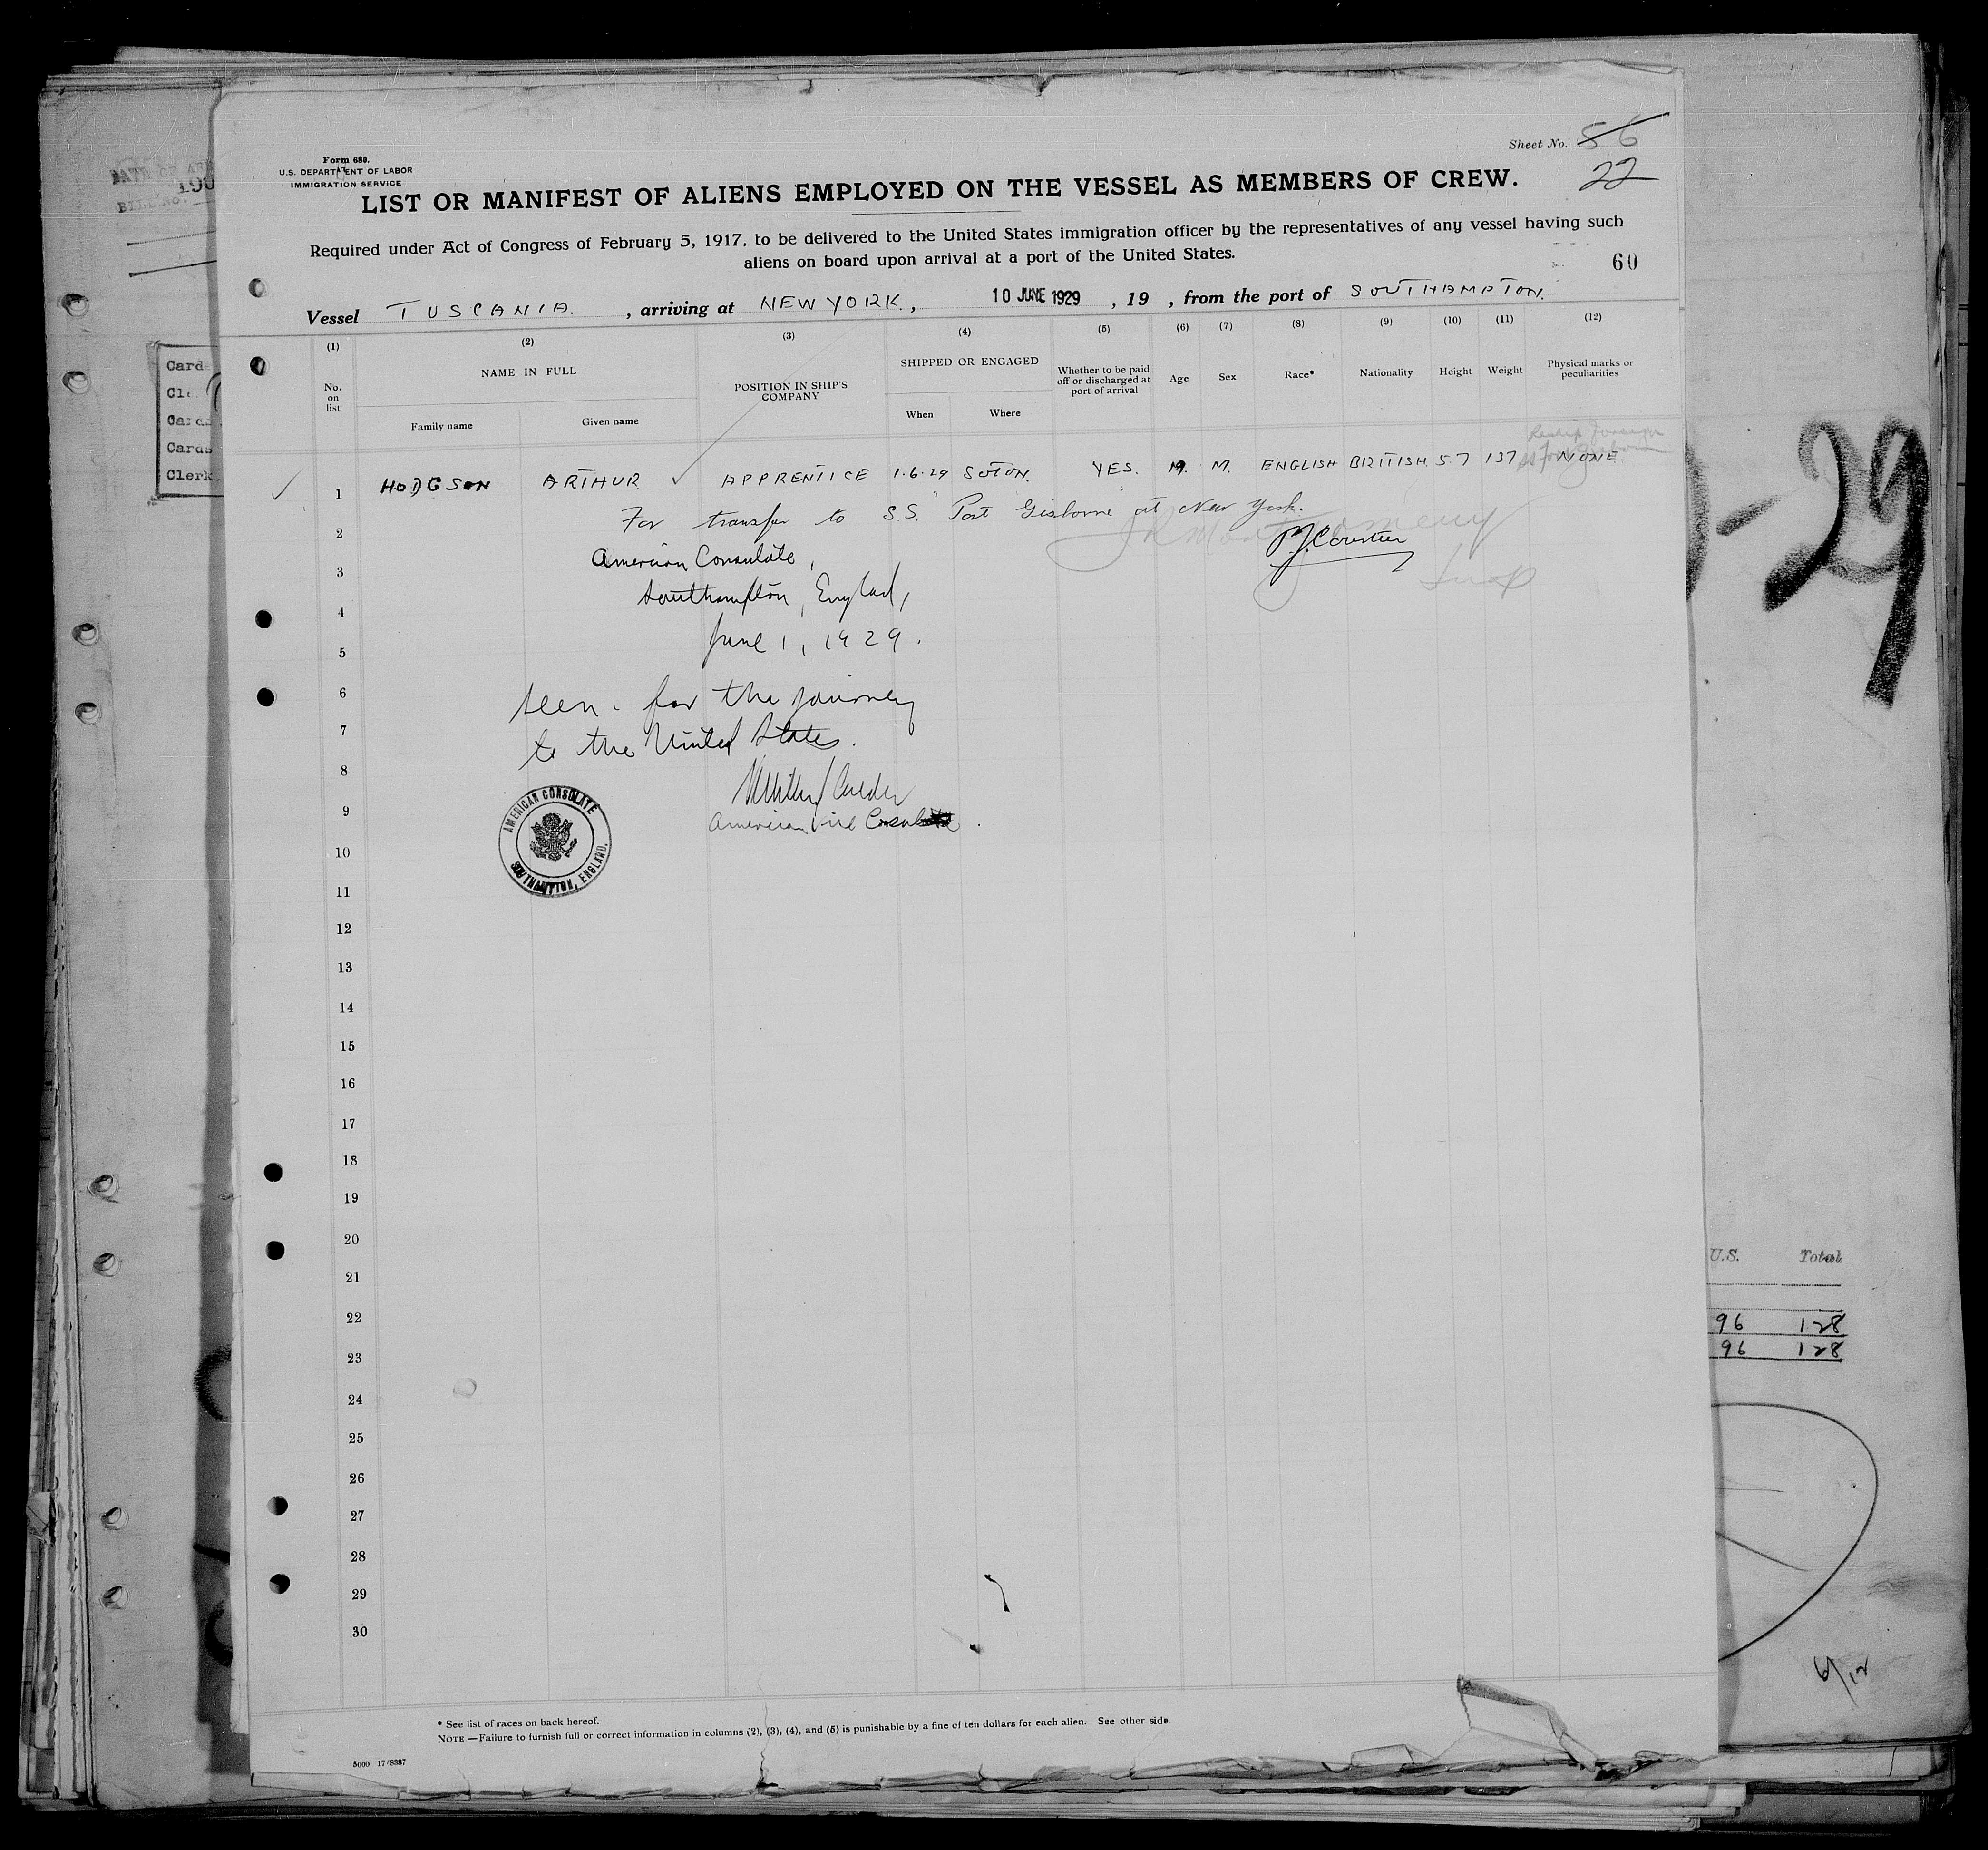 Form 680.
U.S. DEPARTMENT OF LABOR
IMMIGRATION SERVICE
Sheet No. 56
22
LIST OR MANIFEST OF ALIENS EMPLOYED ON THE VESSEL AS MEMBERS OF CREW.
Required under Act of Congress of February 5, 1917, to be delivered to the United States immigration officer by the representatives of any vessel having such
aliens on board upon arrival at a port of the United States.
60
Vessel TUSCANIA. , arriving at NEW YORK., 10 JUNE 1929 , 19 , from the port of SOUTHAMPTON.
(1) (2) (3) (4) (5) (6) (7) (8) (9) (10) (11) (12)
No. on list
NAME IN FULL
Family name Given name
POSITION IN SHIP'S COMPANY
SHIPPED OR ENGAGED
When Where
Whether to be paid off or discharged at port of arrival
Age Sex Race* Nationality Height Weight
Physical marks or peculiarities
1 HODGSON ARTHUR APPRENTICE 1.6.29 SOTON. YES. M. ENGLISH BRITISH 5.7 137 NONE
For transfer to S.S. "Port Gisborne" at New York.
2
American Consulate,
3
Southampton, England,
4
June 1, 1929.
5
6
Seen. for the journey
7
to the United States.
8
9
American Vice Consul
AMERICAN CONSULATE
SOUTHAMPTON, ENGLAND.
10
11
12
13
14
15
16
17
18
19
20
21
22
23
24
25
26
27
28
29
30
* See list of races on back hereof.
NOTE —Failure to furnish full or correct information in columns (2), (3), (4), and (5) is punishable by a fine of ten dollars for each alien. See other side
5000 17/8387
Card
Cards
Cards
Clerk
-29
U.S. Total
96 128
96 128
6/12